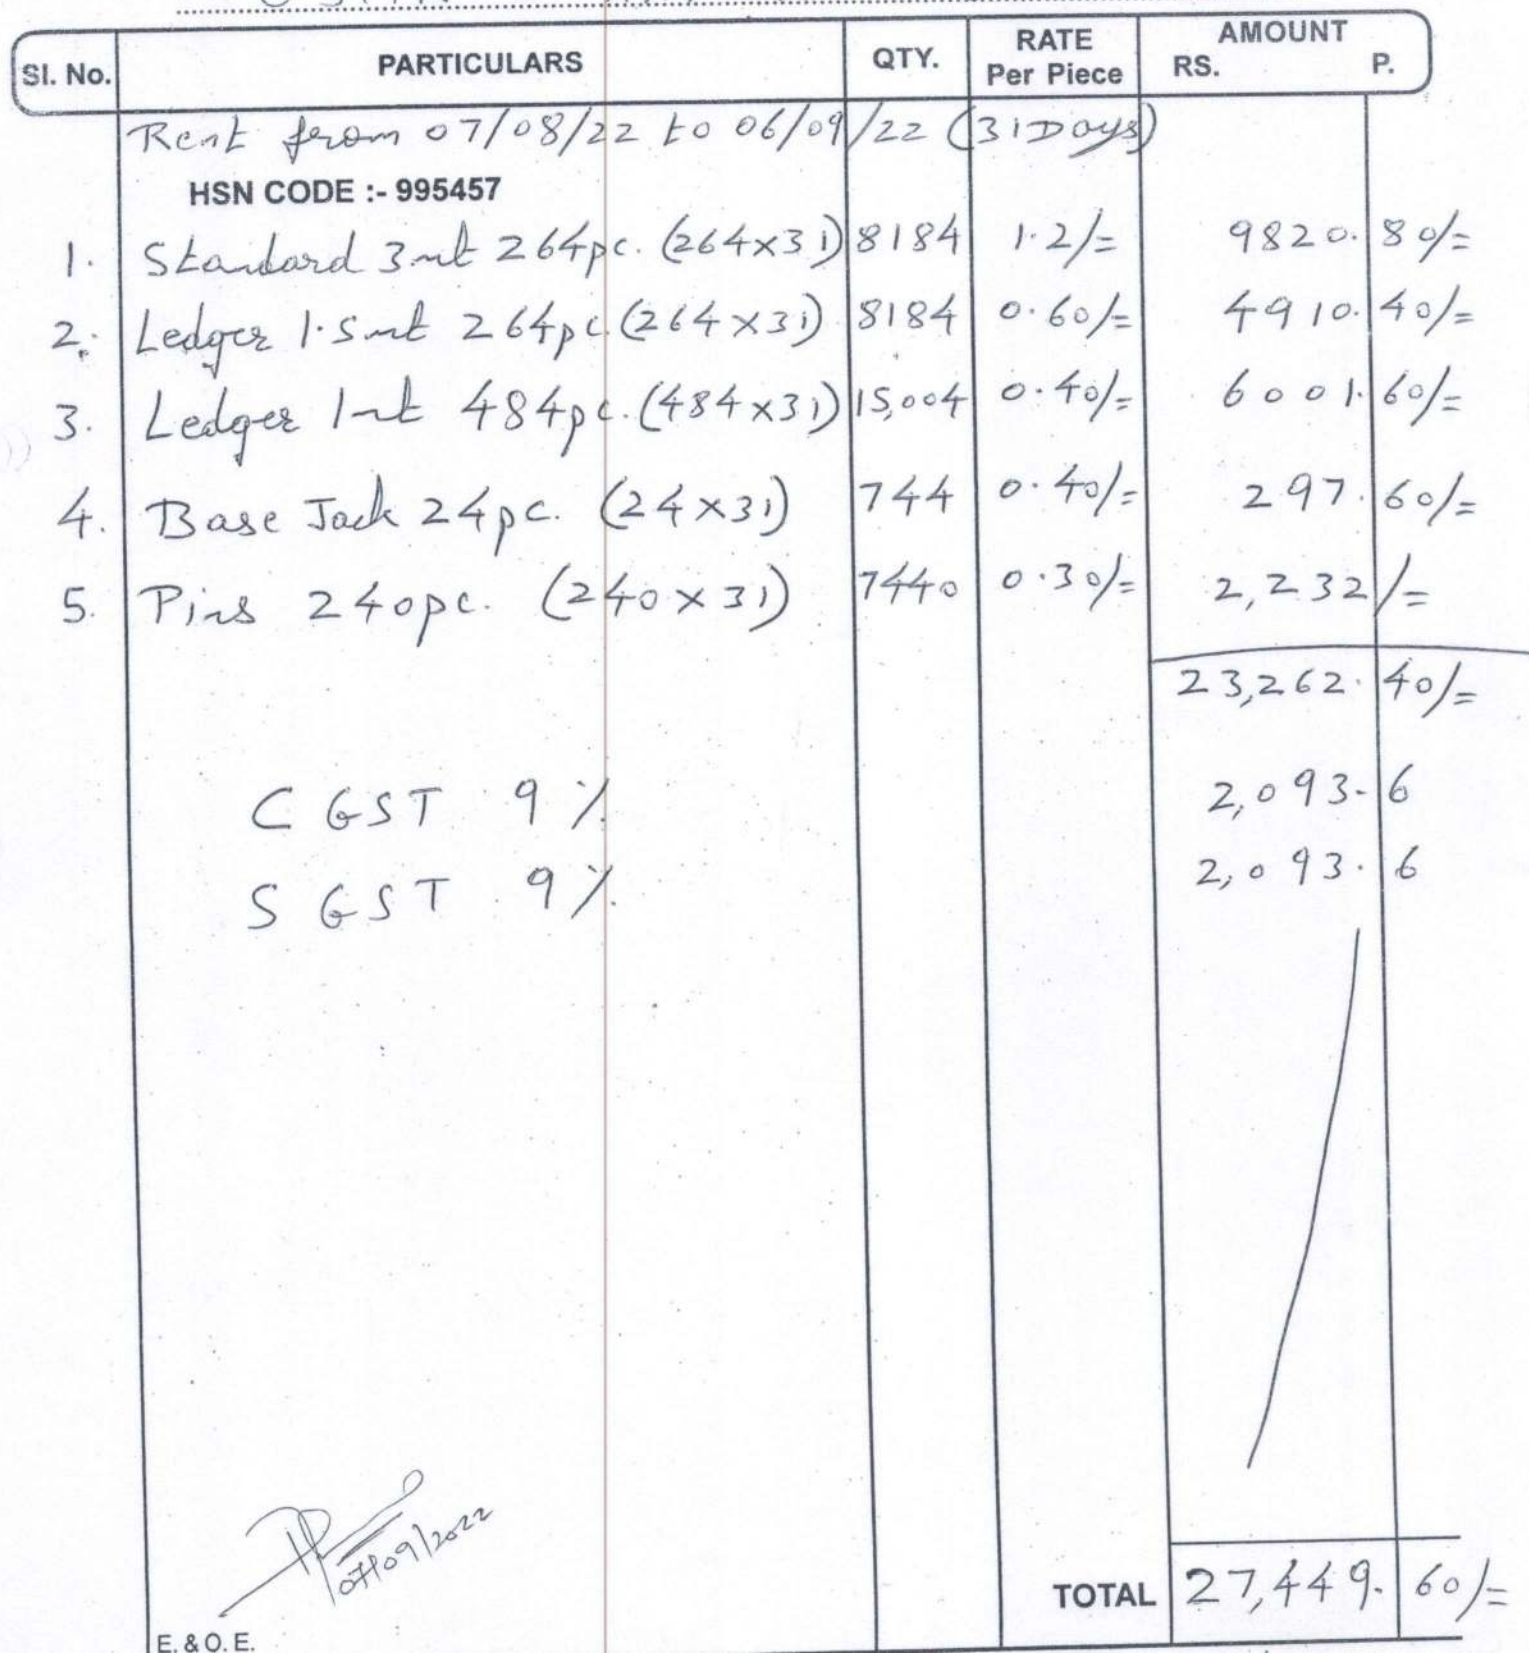 Sl. No. PARTICULARS QTY. RATE Per Piece AMOUNT RS. P.
Rent from 07/08/22 to 06/09/22 (31 Days)
HSN CODE :- 995457
1. Standard 3mt 264pc. (264x31) 8184 1.2/= 9820. 80/=
2. Ledger 1.5mt 264pc (264x31) 8184 0.60/= 4910. 40/=
3. Ledger 1mt 484pc. (484x31) 15,004 0.40/= 6001. 60/=
4. Base Jack 24pc. (24x31) 744 0.40/= 297. 60/=
5. Pins 240pc. (240x31) 7440 0.30/= 2,232/=
23,262. 40/=
CGST 9% 2,093. 6
SGST 9% 2,093. 6
07/09/2022
TOTAL 27,449. 60/=
E. & O. E.